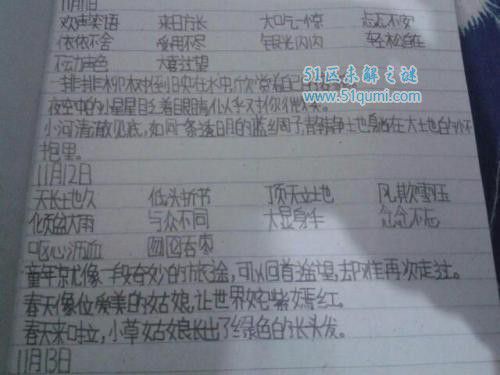 11月11日
欢声笑语 来日方长 大吃一惊 恋恋不舍
依依不舍 受用不尽 银光闪闪 轻松自在
不动声色 大喜过望
一排排柳树倒映在水中欣赏着自己的
夜空中的小星星眨着眼睛似乎对你
小河清澈见底,如同一条透明的蓝绸子静静地躺在大地的
抱里。
51区未解之谜
www.51qumi.com
11月12日
天长地久 低头折节 顶天立地 风欺雪压
倾盆大雨 与众不同 大显身手 念念不忘
呕心沥血 囫囵吞枣
童年就像一段奇妙的旅途,可以回首遥望,却难再次走过。
春天像位爱美的姑娘,让世界姹紫嫣红。
春天来啦,小草姑娘长出了绿色的长头发。
11月13日